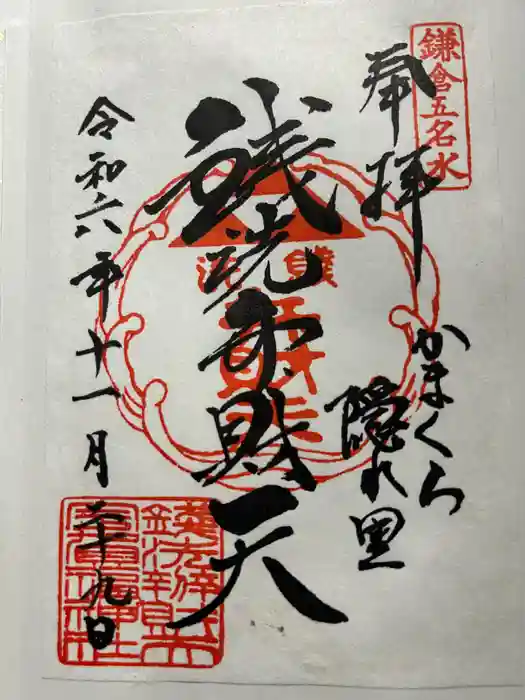 鎌倉五名水
奉拝
かまくら
隠れ里
銭洗弁財天
令和六年十一月二十九日